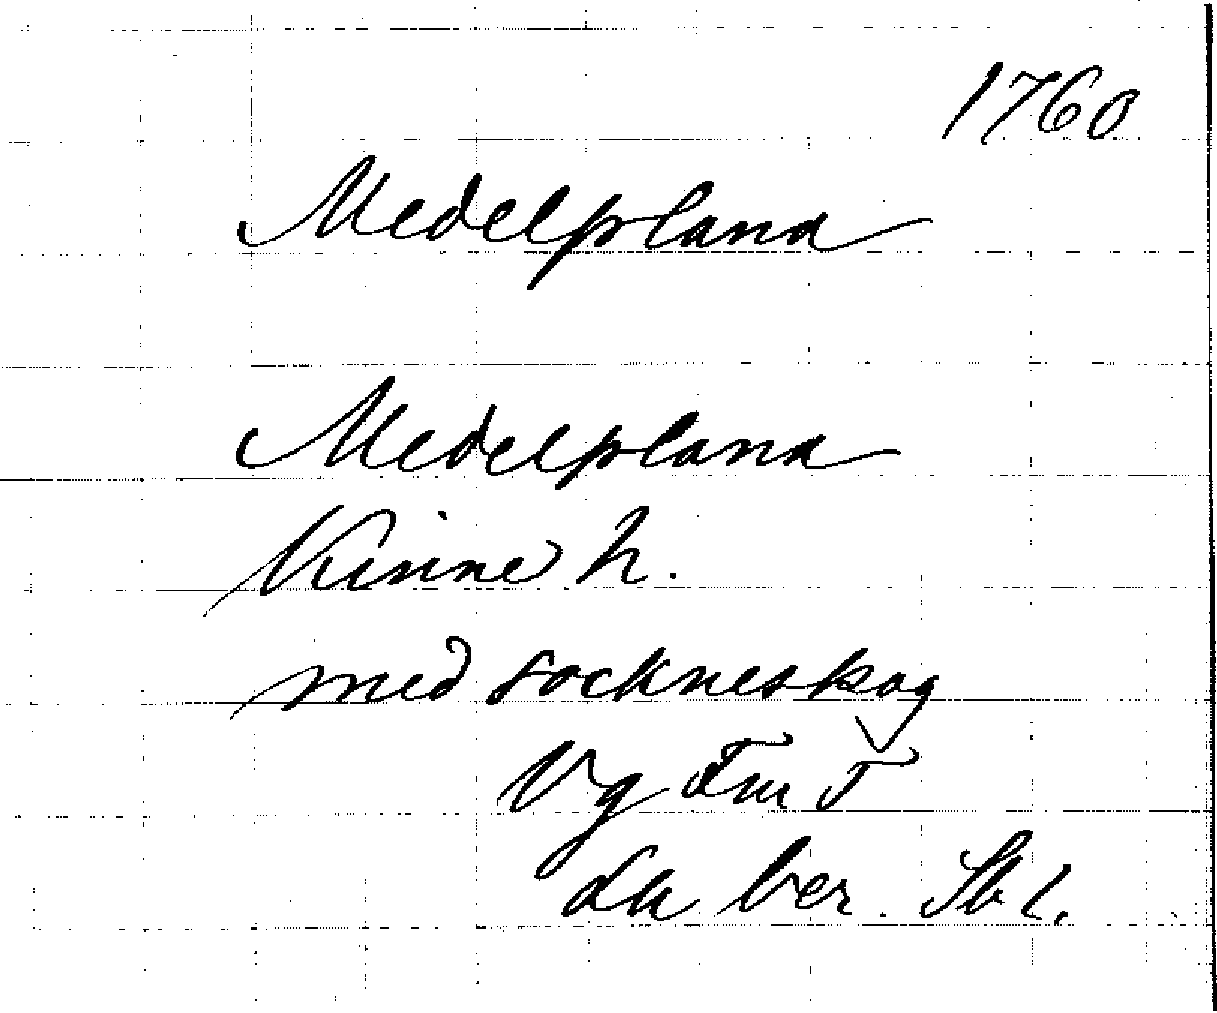 1760
Medelplana
Medelplana
Kinne h.
med sockneskog
Vg
ber.